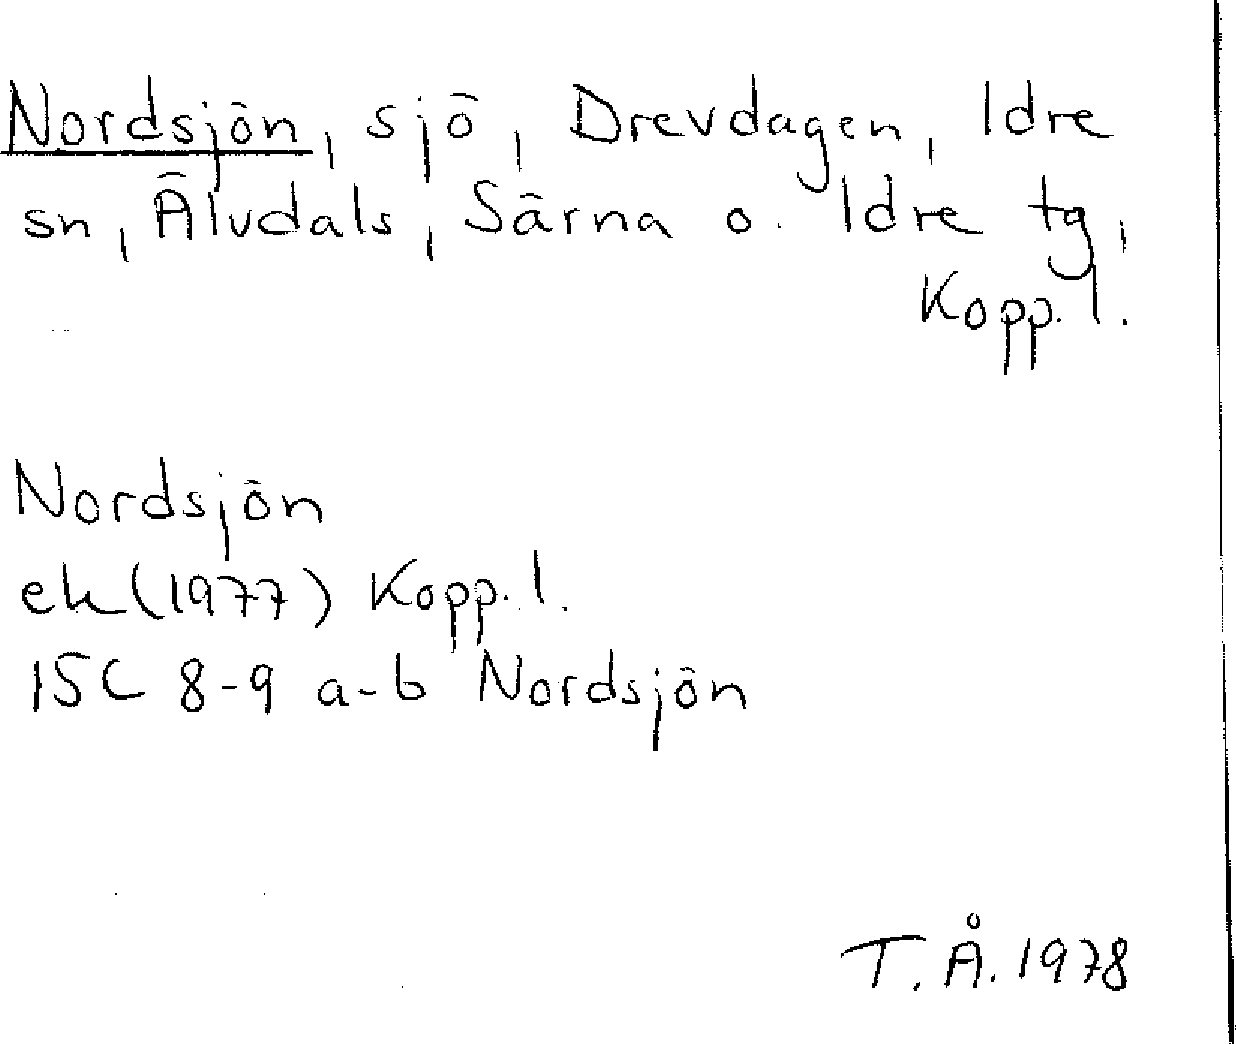 Nordsjön, sjö, Drevdagen, Idre
sn, Älvdals, Särna o. Idre tg,
Kopp. l.
Nordsjön
ek (1977) Kopp. l.
15C 8-9 a-b Nordsjön
T.Å. 1978